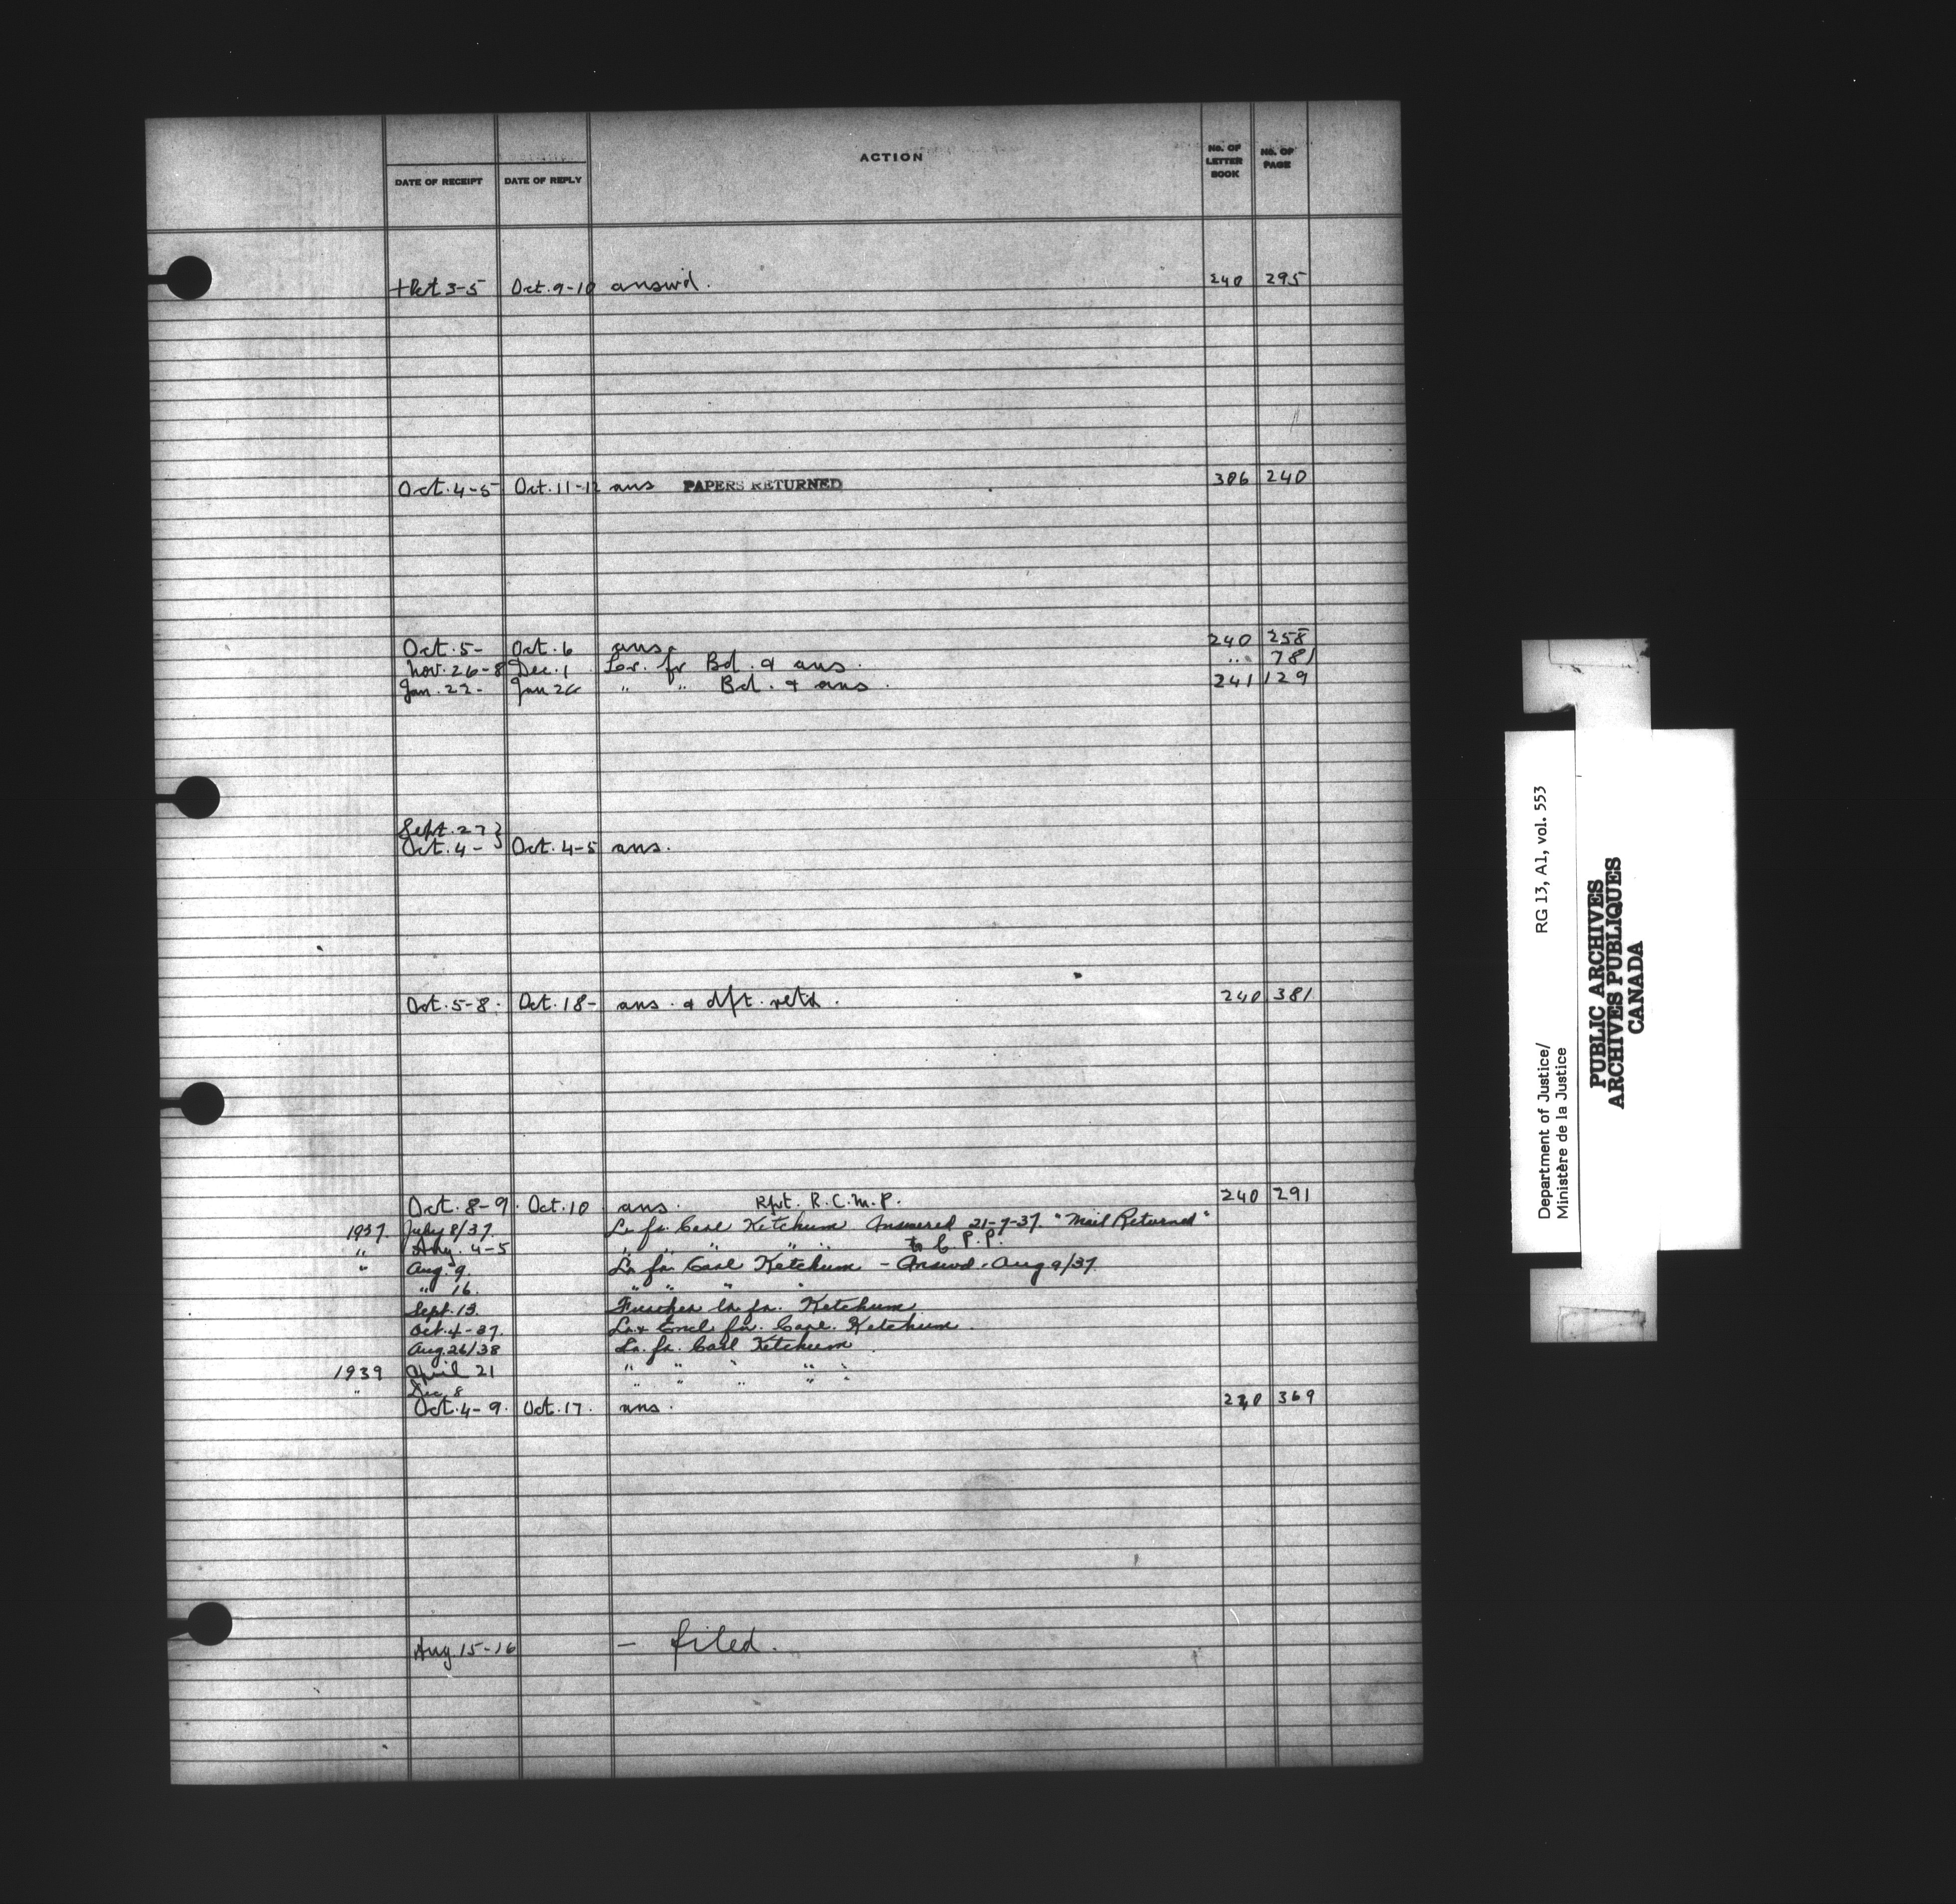 ACTION
No. OF LETTER BOOK
No. OF PAGE
DATE OF RECEIPT DATE OF REPLY
Oct 3-5 Oct. 9-10 answd. 240 295
Oct. 4-5 Oct. 11-12 ans PAPERS RETURNED 306 240
Oct. 5- Oct. 6 ans. 240 258
Nov. 26-8 Dec. 1 Ler. fr Bd. & ans. " 781
Jan. 22- Jan 26 " " Bd. & ans. 241 129
Sept. 27 }
Oct. 4- } Oct. 4-5 ans.
Oct. 5-8. Oct. 18- ans. & dft. retd. 240 381
Oct. 8-9. Oct. 10 ans. Rpt. R.C.M.P. 240 291
1937. July 8/37. Lr. fr. Carl Ketchum Answered 21-7-37. "Mail Returned"
" Aug. 4-5 " " " " " to C.P.P.
" Aug. 9. Lr. fr. Carl Ketchum - Answd. Aug 9/37
" 16. " " " "
Sept. 13. Further lr. fr. Ketchum.
Oct. 4-37. Lr. & Encl fr. Carl. Ketchum.
Aug. 26/38 Lr. fr. Carl Ketchum.
1939 April 21 " " " " "
" Dec. 8 " " " " "
Oct. 4-9. Oct. 17. ans. 240 369
Aug. 15-16 - filed.
Department of Justice/ RG 13, A1, vol. 553
Ministère de la Justice
PUBLIC ARCHIVES
ARCHIVES PUBLIQUES
CANADA